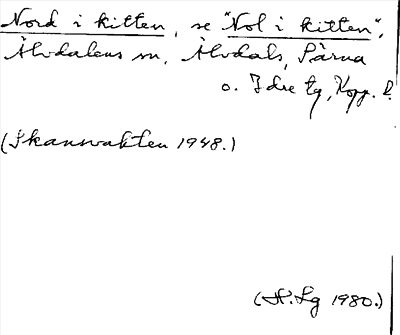 Nord i kitten, se "Nol i kitten",
Älvdalens sn, Älvdals, Särna
o. Idre tg, Kopp. l.
(Skansvakten 1948.)
(H. Lg 1980.)